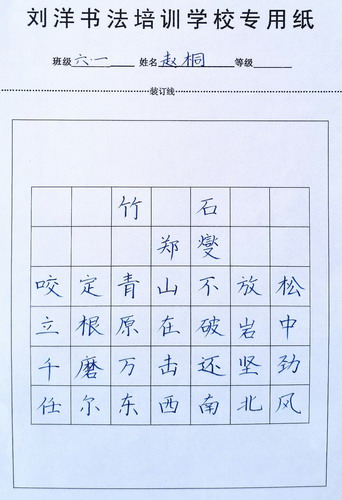 刘洋书法培训学校专用纸
班级 六·一 姓名 赵桐 等级
装订线
竹 石
郑 燮
咬定青山不放松
立根原在破岩中
千磨万击还坚劲
任尔东西南北风